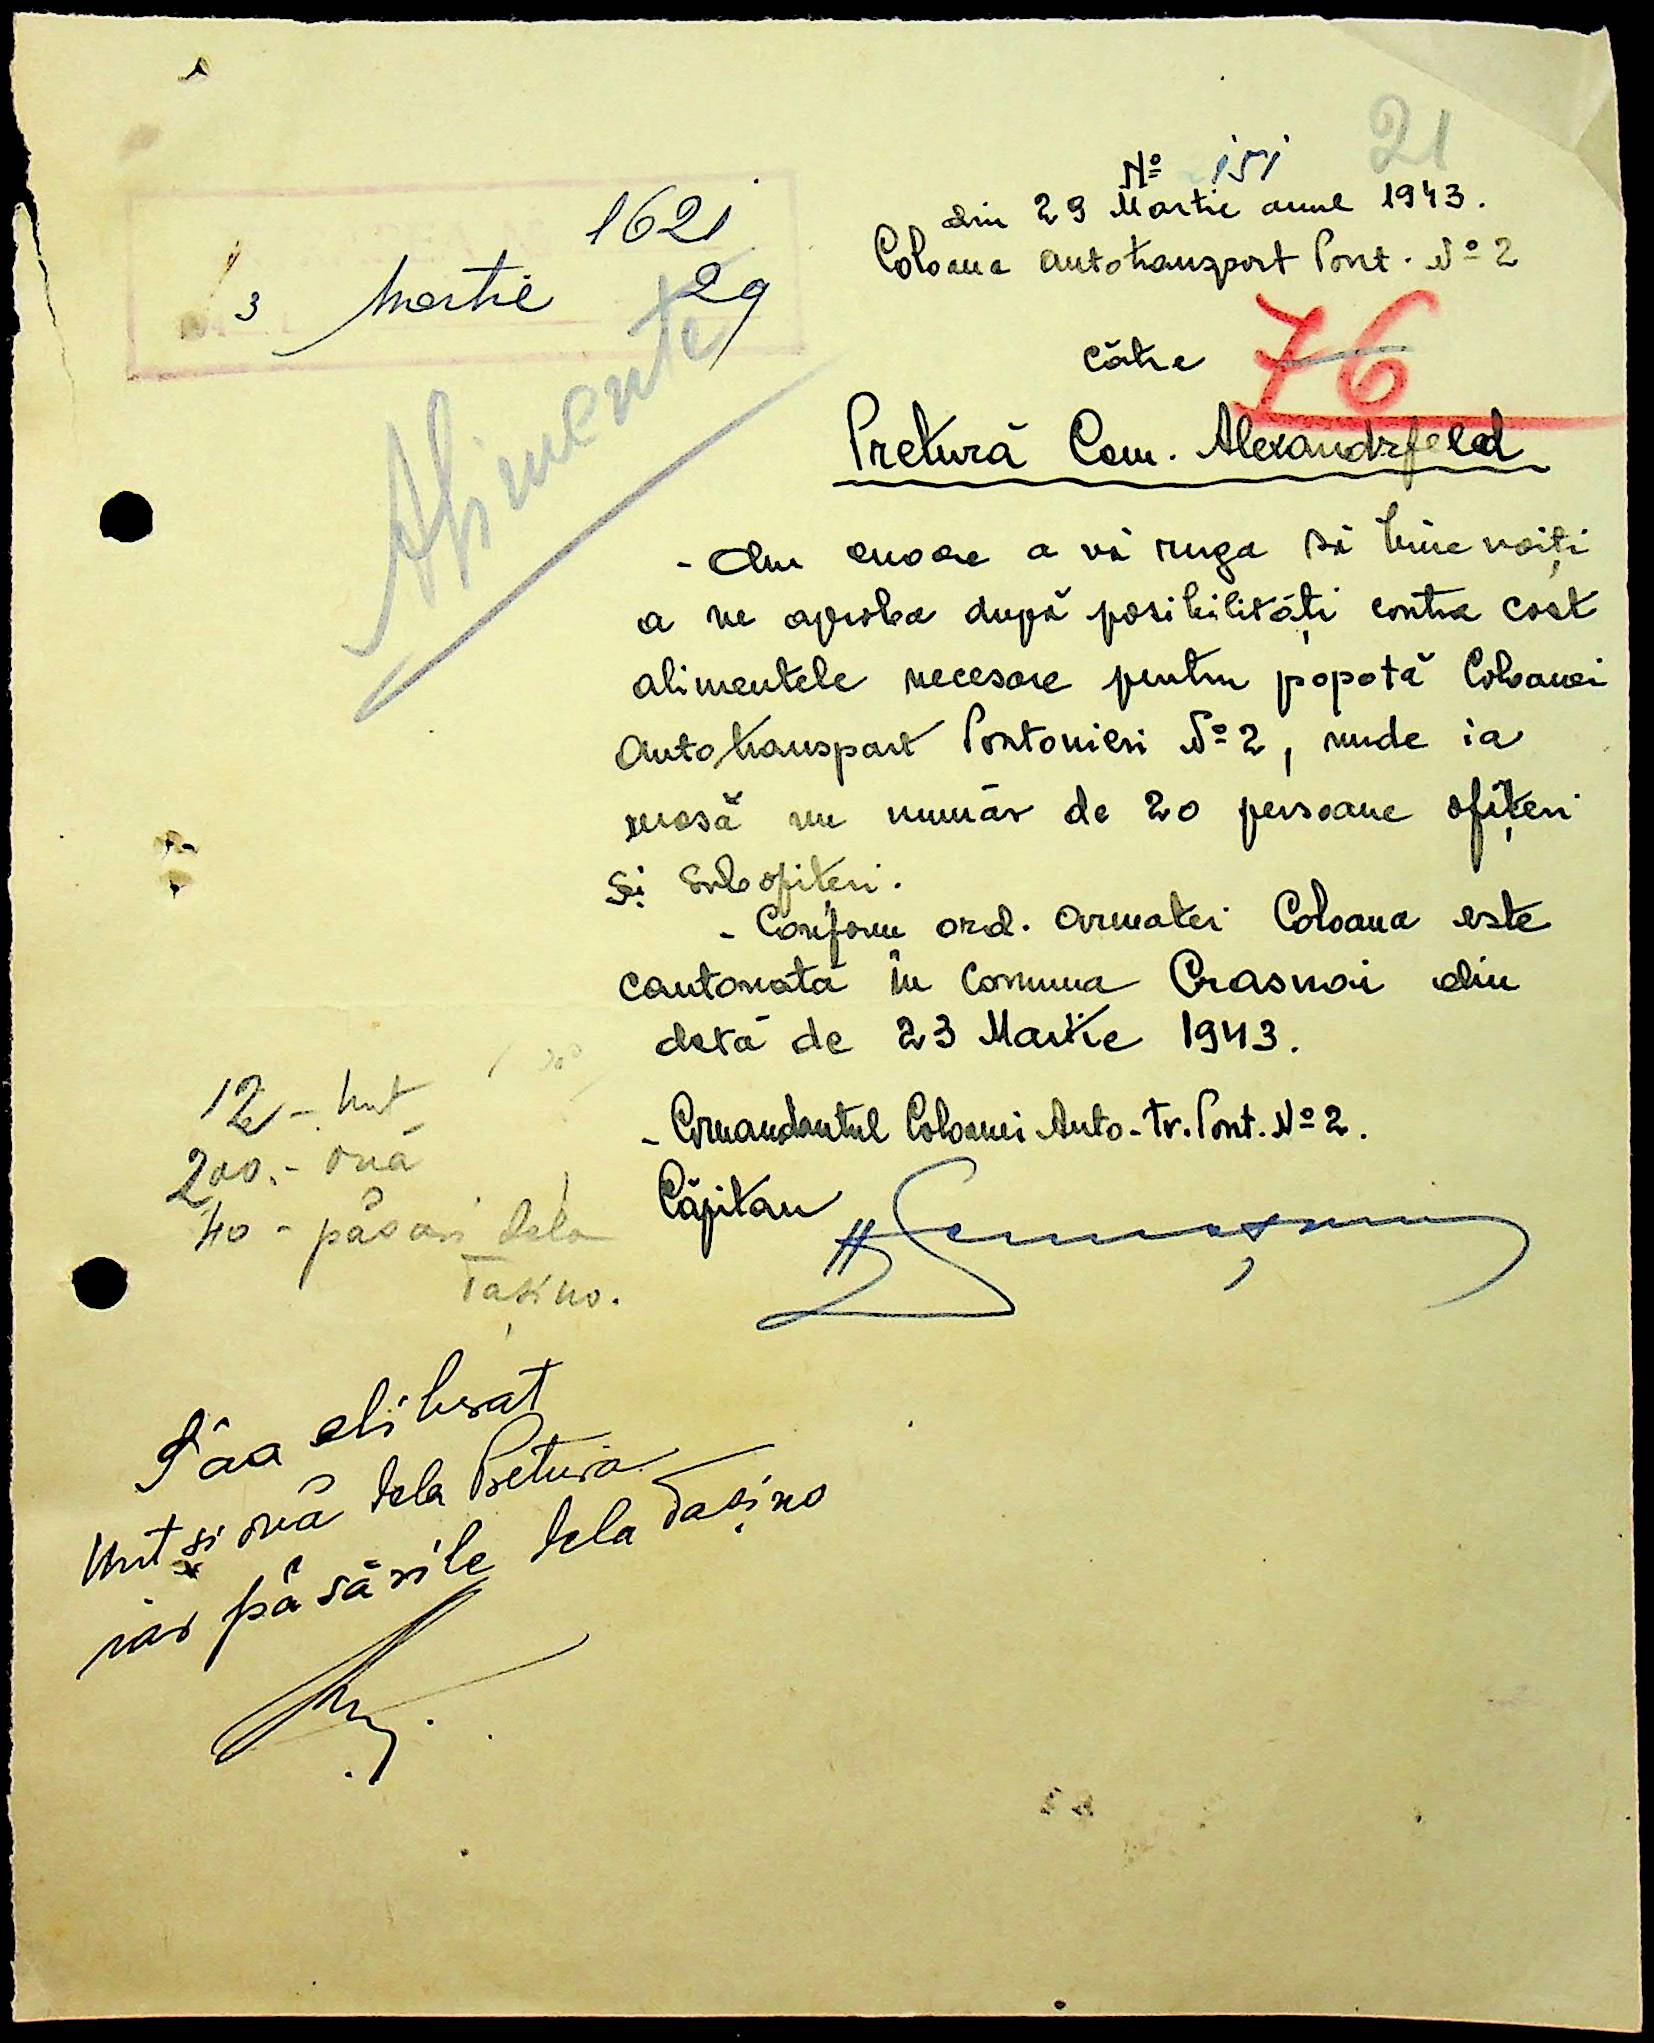 21
Nº 151
din 29 Martie anul 1943.
Coloana autotransport Pont. Nº 2
1621
3 Martie 29
Alimente
către
76
Pretură Com. Alexandrfeld
- Am onoare a vă ruga să bine voiți
a ne aproba după posibilități contra cost
alimentele necesare pentru popotă Coloanei
Autotransport Pontonieri Nº 2, unde ia
masă un număr de 20 persoane ofițeri
și subofițeri.
- Conform ord. Armatei Coloana este
cantonată în comuna Crasnoi din
dată de 23 Martie 1943.
- Comandantul Coloanei Auto-tr. Pont. Nº 2.
Căpitan
12 - unt
200.- ouă
40 - păsări dela
Tașino.
S'a eliberat
unt și ouă dela Pretura
iar păsările dela Tașino